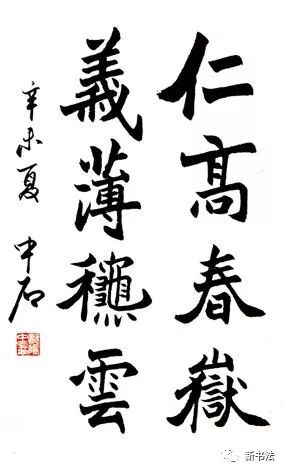 仁髙春嶽
義薄龝雲
辛未夏 中石
新书法